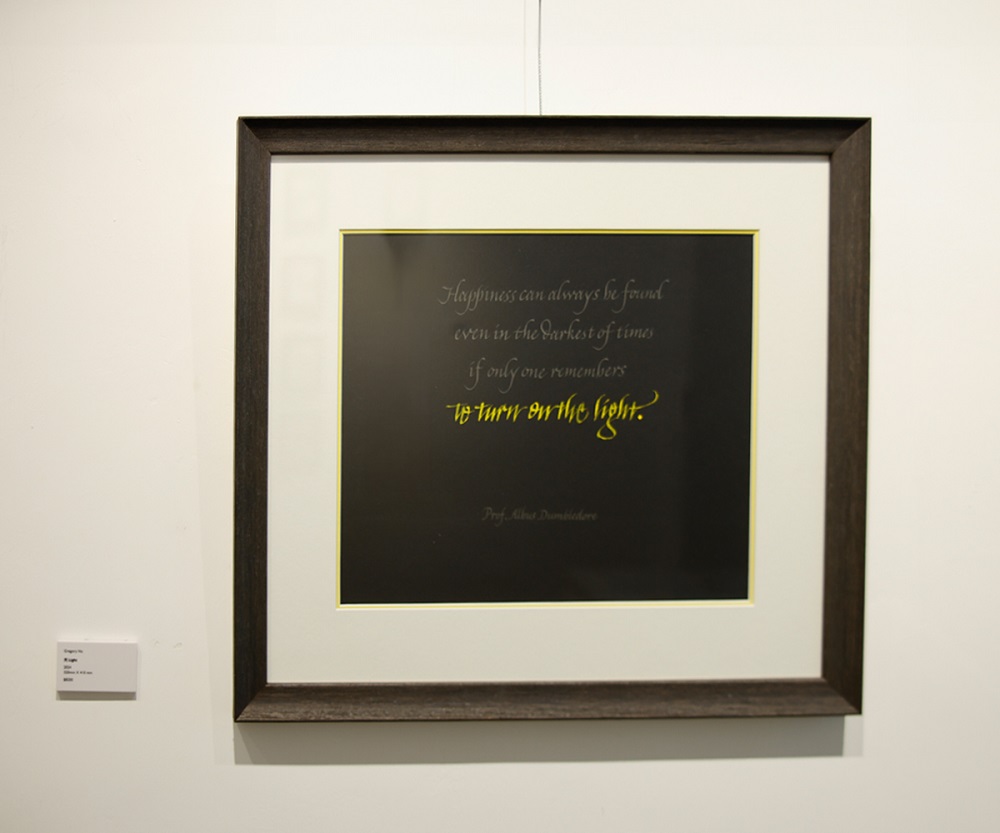 Happiness can always be found
even in the darkest of times
if only one remembers
to turn on the light.
Prof. Albus Dumbledore
Gregory Ho
Light